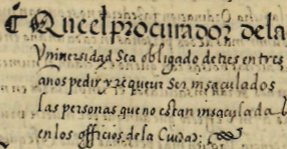 ¶ Que el procurador dela
Vniuersidad sea obligado detres entres
anos pedir y requerir ser insaculados
las personas que no estan insaculadas
en los officios dela Ciudad: